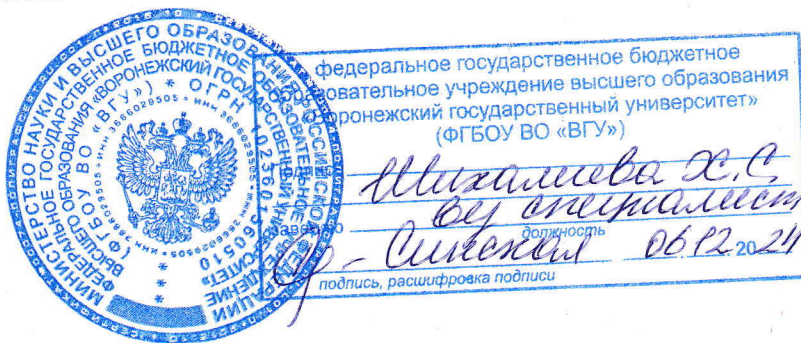 МИНИСТЕРСТВО НАУКИ И ВЫСШЕГО ОБРАЗОВАНИЯ РОССИЙСКОЙ ФЕДЕРАЦИИ
ФЕДЕРАЛЬНОЕ ГОСУДАРСТВЕННОЕ БЮДЖЕТНОЕ ОБРАЗОВАТЕЛЬНОЕ УЧРЕЖДЕНИЕ
ВЫСШЕГО ОБРАЗОВАНИЯ «ВОРОНЕЖСКИЙ ГОСУДАРСТВЕННЫЙ УНИВЕРСИТЕТ»
(ФГБОУ ВО «ВГУ») * ОГРН
ИНН 3666029505
федеральное государственное бюджетное
образовательное учреждение высшего образования
«Воронежский государственный университет»
(ФГБОУ ВО «ВГУ»)
Х.С.
специалист
должность
06.12.2024
подпись, расшифровка подписи